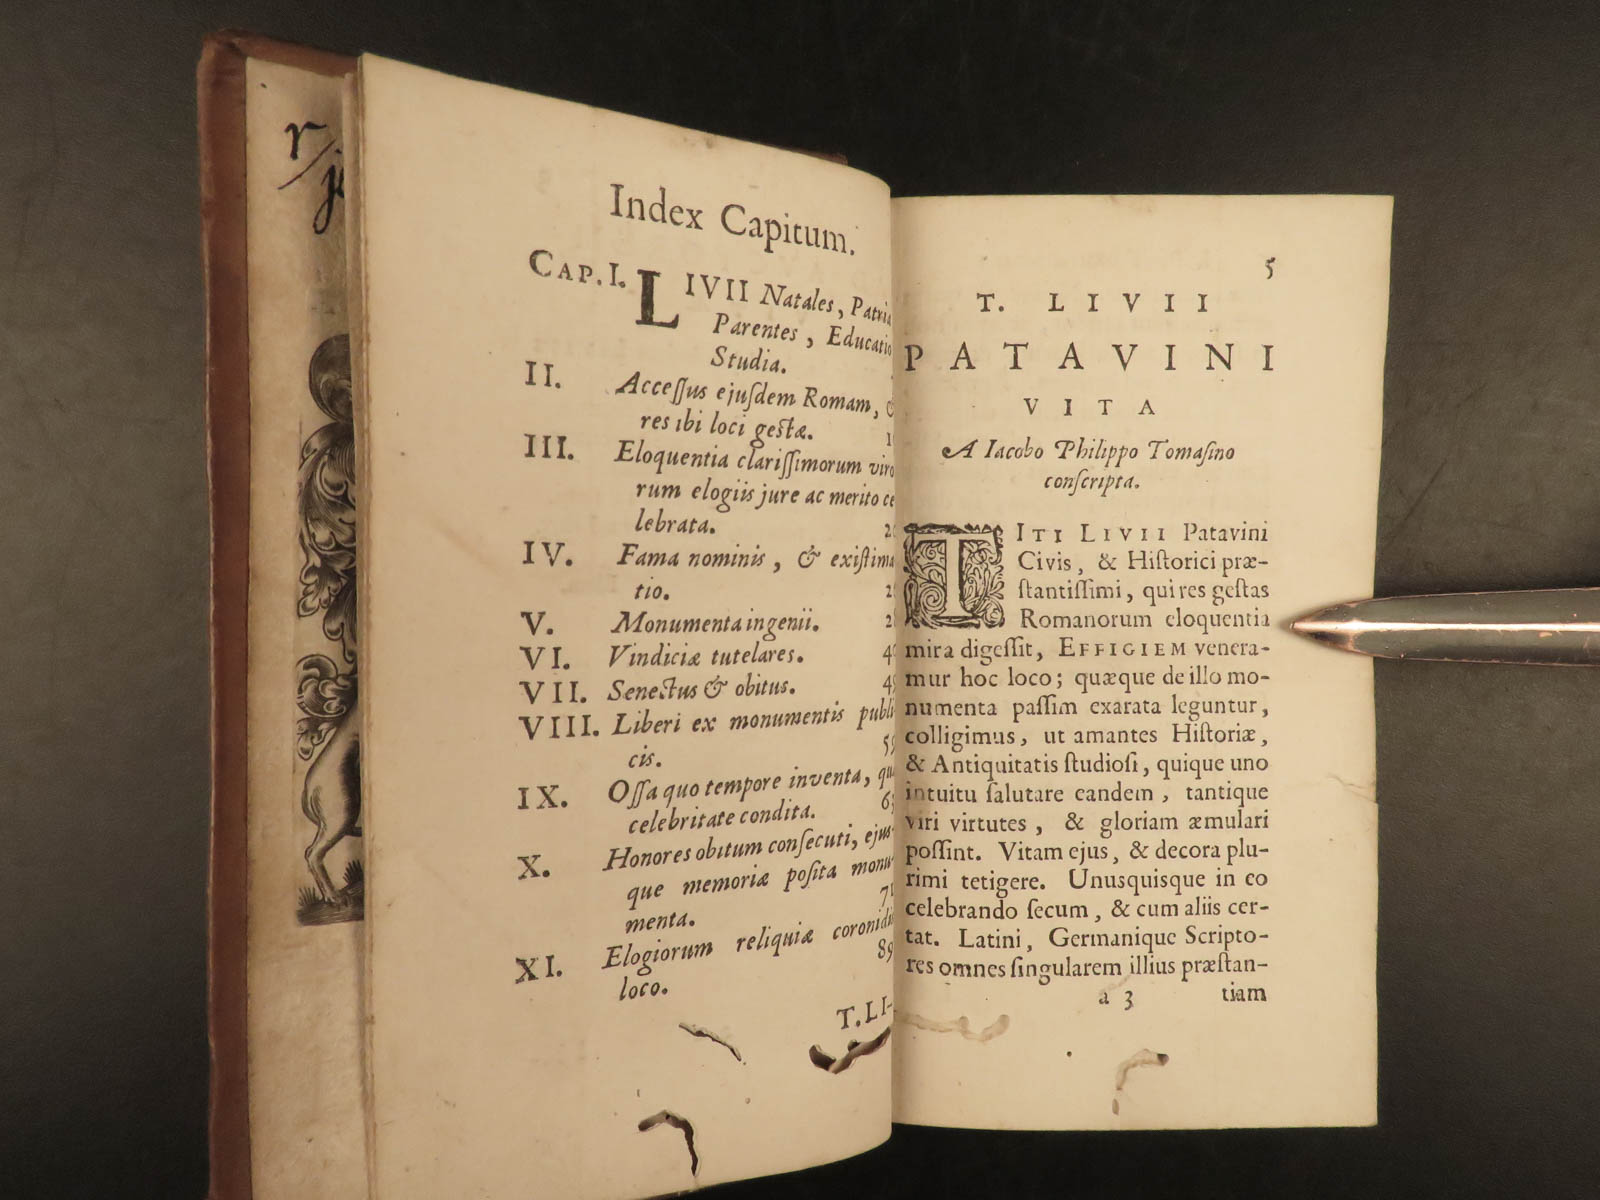 Index Capitum.
CAP. I. LIVII Natales, Patria
Parentes, Educatio
Studia.
II. Acceſſus ejuſdem Romam, &
res ibi loci geſtæ.
III. Eloquentia clariſſimorum viro
rum elogiis jure ac merito ce
lebrata.
IV. Fama nominis, & exiſtima
tio.
V. Monumenta ingenii.
VI. Vindiciæ tutelares.
VII. Senectus & obitus.
VIII. Liberi ex monumentis publi
cis.
IX. Oſſa quo tempore inventa, qua
celebritate condita.
X. Honores obitum conſecuti, ejus-
que memoriæ poſita monu-
menta.
XI. Elogiorum reliquiæ coronidis
loco. 89
T. LI-
5
T. LIVII
PATAVINI
VITA
A Iacobo Philippo Tomaſino
conſcripta.
TITI LIVII Patavini
Civis, & Hiſtorici præ-
ſtantiſſimi, qui res geſtas
Romanorum eloquentia
mira digeſſit, EFFIGIEM venera-
mur hoc loco; quæque de illo mo-
numenta paſſim exarata leguntur,
colligimus, ut amantes Hiſtoriæ,
& Antiquitatis ſtudioſi, quique uno
intuitu ſalutare eandem, tantique
viri virtutes, & gloriam æmulari
poſſint. Vitam ejus, & decora plu-
rimi tetigere. Unusquisque in eo
celebrando ſecum, & cum aliis cer-
tat. Latini, Germanique Scripto-
res omnes ſingularem illius præſtan-
a 3 tiam